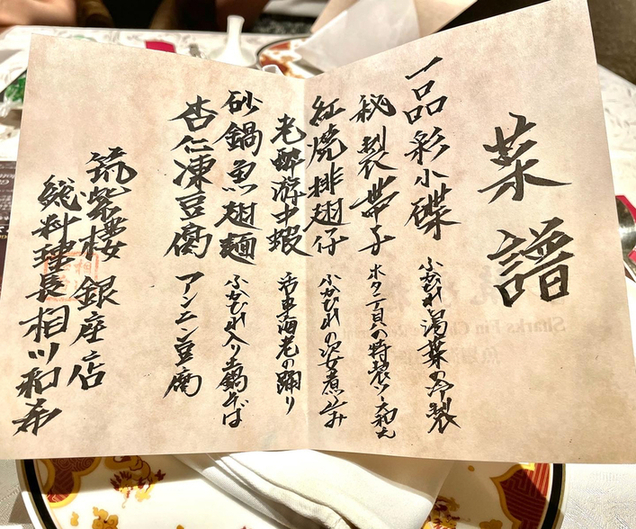 菜譜
一品彩小碟 ふかひれと湯葉の冷製
秘製帯子 ホタテ貝の特製ソース和え
紅焼排翅仔 ふかひれの姿煮込み
老酔游中蝦 活車海老の踊り
砂鍋魚翅麺 ふかひれ入り土鍋そば
杏仁凍豆腐 アンニン豆腐
筑紫樓 銀座店
総料理長 相川和寿